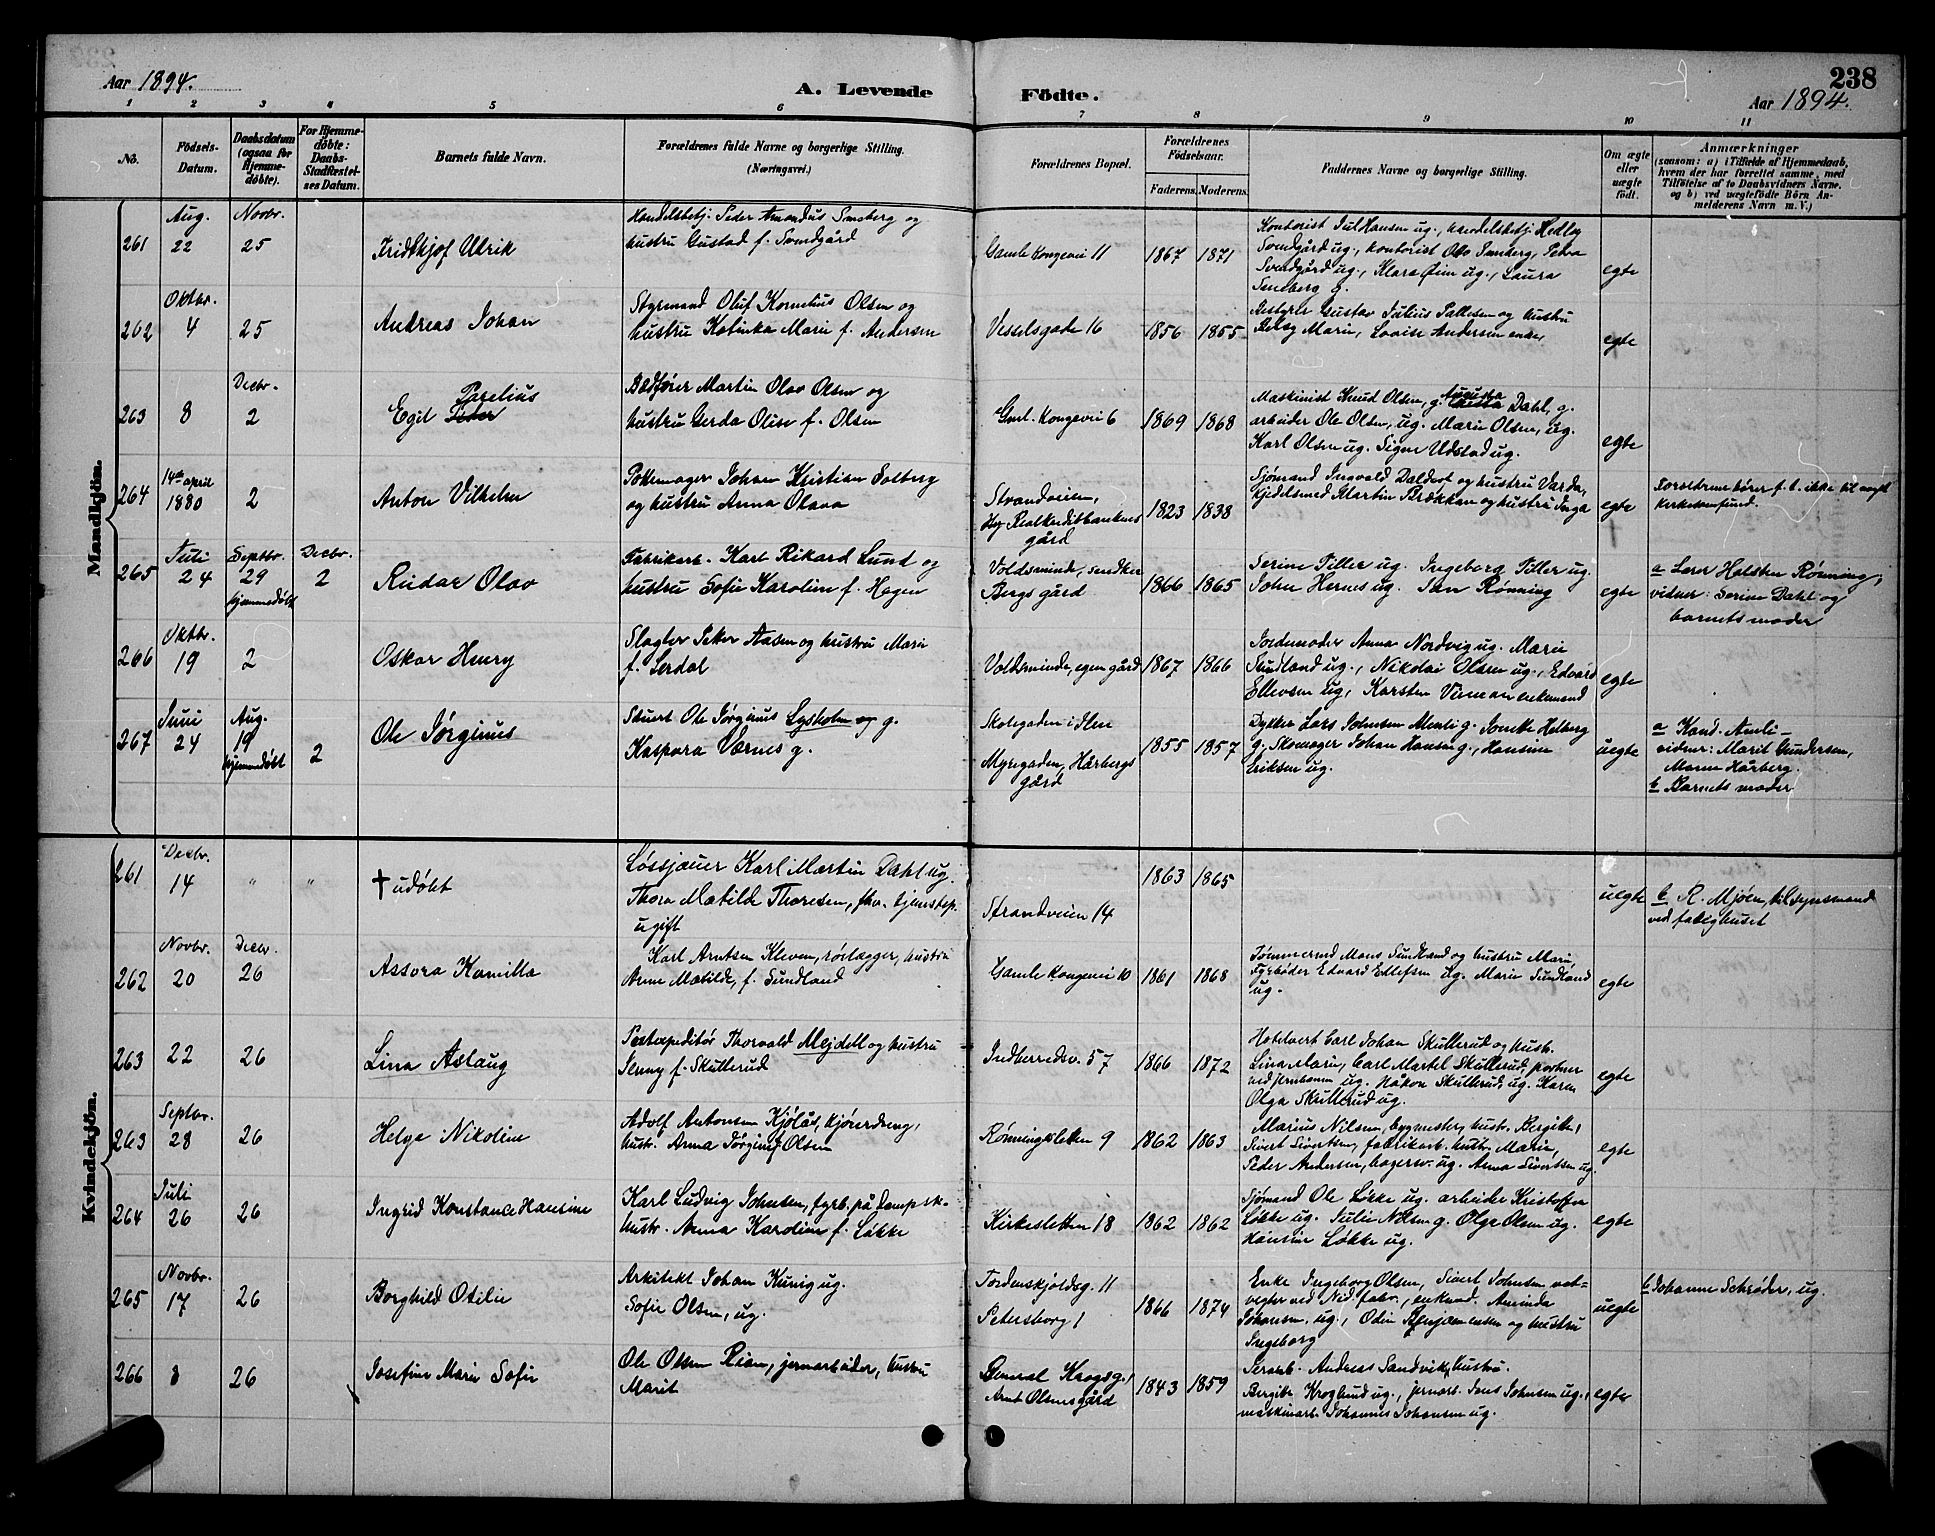 Aar 1894.
A. Levende
Fødte.
238
Aar 1894.
1 2 3 4 5 6 7 8 9 10 11
No.
Fødsels-Datum.
Daabsdatum (ogsaa for Hjemme-døbte).
For Hjemme-døbte: Daabs-Stadfæstel-ses Datum.
Barnets fulde Navn.
Forældrenes fulde Navne og borgerlige Stilling. (Næringsvei.)
Forældrenes Bopæl.
Forældrenes Fødselsaar.
Faderens. Moderens.
Faddernes Navne og borgerlige Stilling.
Om ægte eller uægte født.
Anmærkninger (saasom: a) i Tilfælde af Hjemmedaab, hvem der har forrettet samme, med Tilføielse af to Daabsvidners Navne, og b) ved uægtefødte Børn An-melderens Navn m. V.)
Mandkjön.
261 Aug. 22 Novbr. 25 Fridthjof Ulrik
Handelsbetj. Peder Amandus Smeberg og
hustru Gustad f. Svendgård
Gamle Kongevei 11 1867 1871
Svendgård ug., kontorist Olav Smeberg, Petra
Svendgård ug., Klara Øien ug., Laura
Smeberg g.
egte
262 Oktbr. 4 25 Andreas Johan
Styrmand Oluf Kornelius Olsen og
hustru Katinka Marie f. Andersen
Vesselsgade 16 1856 1855
Bestyrer Gustav Julius Pallesen og hustru
Betsy Marie, Lovise Andersen enke,
egte
263 8 Decbr. 2 Egil Parelius Peder
Bødfører Martin Olav Olsen og
hustru Gerda Olise f. Olsen
Gml. Kongevei 6 1869 1868
Maskinist Knud Olsen, g. Augusta Dahl, g.
arbeider Ole Olsen, ug. Marie Olsen, ug.
Karl Olsen ug. Signe Udstad ug.
egte
264 14de april 1880 2 Anton Vilhelm
Pottemager Johan Kristian Solberg
og hustru Anna Olava
Strandveien,
Hyp. Realkreditbankens
gård
1823 1838
Sjømand Ingvald Daldort og hustru Varda,
kjedelsmed Martin Brækkan og hustru Inga
egte
Forældrene hører f. t. ikke til noget
kirkesamfund.
265 Juli 24 Septbr. 29 hjemmedøbt Decbr. 2 Rudar Olav
Fabrikarb. Karl Rikard Lund og
hustru Sofie Karoline f. Hagen
Voldsminde, snedker
Bergs gård
1866 1865
Serine Tiller ug. Ingeborg Tiller ug.
John Hernes ug. Jan Rønning
egte
a Lærer Halsten Rønning,
vidner: Serine Dahl og
barnets moder
266 Oktbr. 19 2 Oskar Henry
Slagter Peter Aasen og hustru Marie
f. Lerdal
Voldsminde, egen gård 1867 1866
Jordemoder Anna Nordvig ug. Marie
Sundland ug., Nikolai Olsen ug., Edvard
Ellevsen ug, Karsten Vinman enkemand
egte
267 Juni 24 Aug. 19 hjemmedøbt 2 Ole Jørginus
Stuert Ole Jørginus Lysholm og g.
Kaspara Værnes g.
Skolegaden i Ilen
Myregaden, Hårbergs
gård
1855 1857
Dykker Lars Johnsen Menli g. Jonette Helberg
g. Skomager Johan Hansen g., Hansine
Eriksen ug.
uegte
a Kand. Amli –
vidner: Marit Gundersen,
Maren Hårberg.
b Barnets moder
Kvindekjön.
261 Decbr. 14 " " † udøbt
Løssjauer Karl Martin Dahl ug.
Thora Matilde Thoresen, fhv. tjenstep.
ugift
Strandveien 14 1863 1865
uegte
b R. Mjøen, tilsynsmand
ved fattighuset
262 Novbr. 20 Decbr. 26 Assora Kamilla
Karl Arntsen Kleven, rørlægger, hustru
Anne Matilde, f. Sundland
Gamle Kongevei 10 1861 1868
Tømmermd Mons Sundland og hustru Marie,
Fyrbøder Edvard Ellefsen ug. Marie Sundland
ug.
egte
263 22 26 Lina Aslaug
Postexpeditør Thorvald Mejdell og hustru
Jenny f. Skullerud
Indherredsv. 57 1866 1872
Hotelvert Carl Johan Skullerud og hust.
Lina Marie, Carl Martel Skullerud, portner
ved jernbanen ug. Håkon Skullerud, ug. Karen
Olga Skullerud ug.
egte
263 Septbr. 28 26 Helga Nikoline
Adolf Antonsen Kjølås, kjøredreng,
hust. Anna Jørgine Olsen
Rønningsletten 9 1862 1863
Marius Nilsen, bygmester, hust. Bergitte,
Sivert Sivertsen, fabrikarb. hust. Marie,
Peder Andersen, bagersv. ug. Anna Sivertsen ug.
egte
264 Juli 26 26 Ingrid Konstance Hansine
Karl Ludvig Johnsen, fyrb. på dampsk.
hustr. Anna Karoline f. Løkke
Kirkesletten 18 1862 1862
Sjømand Ole Løkke ug. arbeider Kristoffer
Løkke ug. Julie Nilsen g. Olga Olsen ug.
Hansine Løkke ug.
egte
265 Novbr. 17 26 Borghild Otilie
Arkitekt Johan Kunig ug.
Sofie Olsen, ug.
Tordenskjoldsg. 11
Petersborg 1
1866 1874
Enke Ingeborg Olsen, Sivert Johnsen nat-
vegter ved Nid. fabr., enkemd. Aminda
Johansen, ug., Odin Benjaminsen og hustru
Ingeborg
uegte
b Johanne Schrøder, ug.
266 8 26 Josefine Marie Sofie
Ole Olsen Rian, jernarbeider, hustru
Marit
General Krogsg.
Arnt Olsens gård
1843 1859
Jernarb. Andreas Sandvik, hustru
Bergitte Kroglund ug., jernarb. Jens Johnsen ug.,
maskinarb. Johannes Johansen ug.
egte